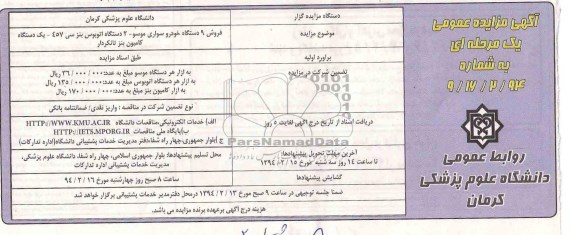 آگهی مزایده عمومی
یک مرحله ای
به شماره
۹/۱۷/۲/۹۴
روابط عمومی
دانشگاه علوم پزشکی
کرمان
دستگاه مزایده گزار
دانشگاه علوم پزشکی کرمان
موضوع مزایده
فروش ۹ دستگاه خودرو سواری موسو - ۲ دستگاه اتوبوس بنز سی ۴۵۷ - یک دستگاه
کامیون بنز تانکردار
براورد اولیه
طبق اسناد مزایده
تضمین شرکت در مزایده
به ازار هر دستگاه موسو مبلغ به عدد: ۳۶/۰۰۰/۰۰۰ ریال
به ازار هر دستگاه اتوبوس مبلغ به عدد: ۱۳۵/۰۰۰/۰۰۰ ریال
به ازار کامیون بنز مبلغ به عدد: ۱۷۰/۰۰۰/۰۰۰ ریال
نوع تضمین شرکت در مناقصه: واریز نقدی/ ضمانتنامه بانکی
دریافت اسناد از تاریخ درج آگهی لغایت ۵ روز
الف) خدمات الکترونیکی مناقصات دانشگاه HTTP://WWW.KMU.AC.IR
ب) پایگاه ملی مناقصات HTTP://IETS.MPORG.IR
ج) بلوار جمهوری چهار راه شفا، دفتر مدیریت خدمات پشتیبانی دانشگاه (اداره تدارکات)
آخرین مهلت تحویل پیشنهادها:
تا ساعت ۱۴ روز سه شنبه مورخ ۱۳۹۴/۰۲/۱۵
محل تسلیم پیشنهادها: بلوار جمهوری اسلامی، چهار راه شفا، دانشگاه علوم پزشکی،
مدیریت خدمات پشتیبانی اداره تدارکات
گشایش پیشنهادها
ساعت ۸ صبح روز چهارشنبه مورخ ۹۴/۰۲/۱۶
ضمنا جلسه توجیهی در ساعت ۹ صبح مورخ ۱۳۹۴/۲/۱۳ درمحل دفتر مدیر خدمات پشتیبانی برگزار خواهد شد
هزینه درج آگهی برعهده برنده مزایده می باشد.
ParsNamadData